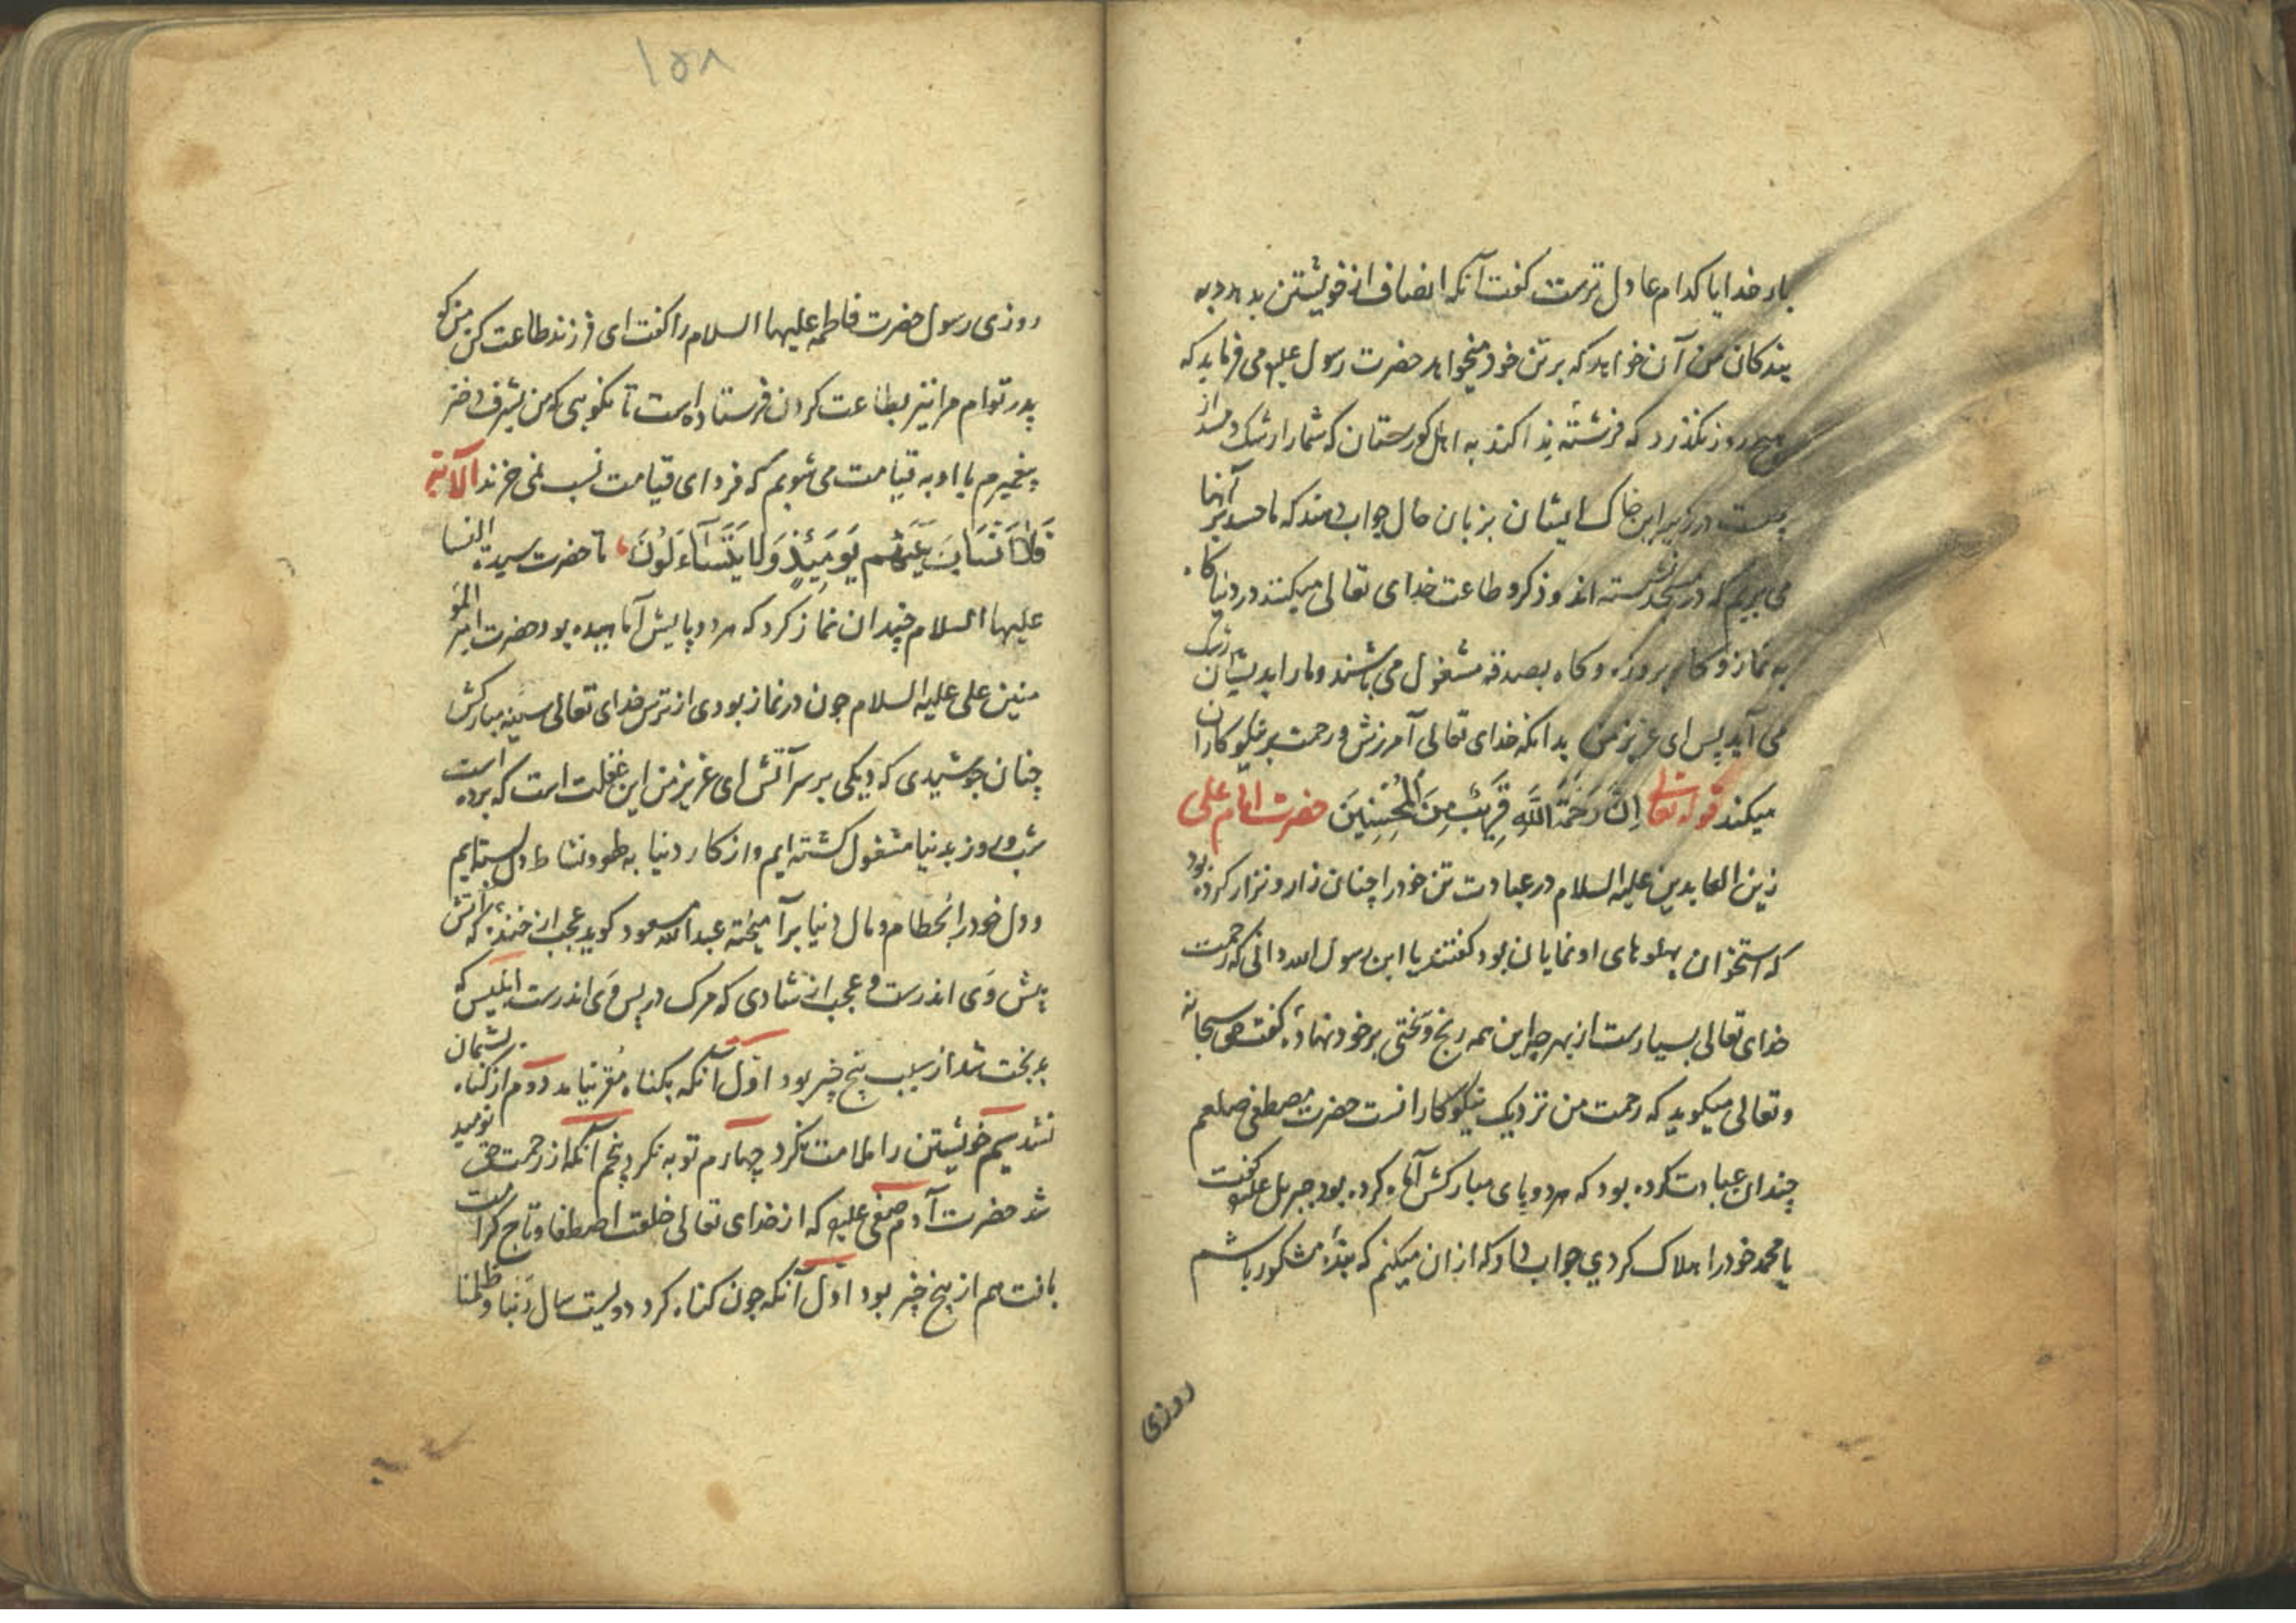 بار خدایا کدام عادل ترست گفت آنکه انصاف از خویشتن بدهد و به
بندکان من آن خواهد که بر تن خود میخواهد حضرت رسول علیه می فرماید که
هیچ روز نکذرد که فرشته ندا کند به اهل کورستان که شما را رشک و حسد از
چیست در زیر این خاک ایشان بزبان حال جواب دهند که ما حسد بر آنها
می بریم که در مسجد نشسته اند و ذکر و طاعت خدای تعالی میکنند در دنیا کاه
به نماز و کاه بروزه و کاه بصدقه مشغول می باشند و ما را بدیشان رشک
می آید پس ای عزیز من بدانکه خدای تعالی آمرزش و رحمت بر نیکوکاران
میکند قوله تعالی اِنَّ رَحْمَةَ اللَّهِ قَرِيبٌ مِنَ الْمُحْسِنِينَ حضرت امام علی
زین العابدین علیه السلام در عبادت تن خود را چنان زار و نزار کرده بود
که استخوان پهلوهای او نمایان بود کفتند یا ابن رسول الله دانی که رحمت
خدای تعالی بسیارست از بهر چه این همه رنج و سختی بر خود نهادهٔ کفت حق سبحانه
و تعالی میکوید که رحمت من نزدیک نیکوکارانست حضرت مصطفی صلعم
چندان عبادت کرده بود که هر دو پای مبارکش آماه کرده بود جبریل علیه کفت
یا محمد خود را هلاک کردی جواب داد که از ان میکنم که بندهٔ مشکور باشم
روزی
۱۵۸
روزی رسول حضرت فاطمه علیها السلام را کفت ای فرزند طاعت کن من کو
پدر توام مرا نیز بطاعت کردن فرستاده است تا نکویی که من بشرف دختر
پیغمبرم با او به قیامت می شویم که فردای قیامت نسب نمی خرند الآیة
فَلَا اَنْسَابَ بَيْنَهُمْ يَوْمَئِذٍ وَلَا يَتَسَاءَلُونَ تا حضرت سیدة النسا
علیها السلام چندان نماز کرد که هر دو پایش آماهیده بود حضرت امیر المؤ
منین علی علیه السلام چون در نماز بودی از ترس خدای تعالی سینه مبارکش
چنان جوشیدی که دیکی بر سر آتش ای عزیز من این غفلت است که برده است
شب و روز بدنیا مشغول کشته ایم و از کار دنیا به طود نشاط دل بسته ایم
و دل خود را بحطام و مال دنیا بر آمیخته عبدالله مسعود کوید عجب از خنده که آتش
پیش وَی اندرست و عجب از شادی که مرک در پس وَی اندرست ابلیس که
بدبخت شد از سبب پنج چیز بود اوّل آنکه بکناه مُقر نیامد دوم از کناه پشمان
نشد سیم خویشتن را ملامت نکرد چهارم توبه نکرد پنجم آنکه از رحمت حق نومید
شد حضرت آدم صفی علیه که از خدای تعالی خلعت اصطفا و تاج کرامت
یافت هم از پنج چیز بود اوّل آنکه چون کناه کرد دویست سال رَبَّنا و ظلمنا